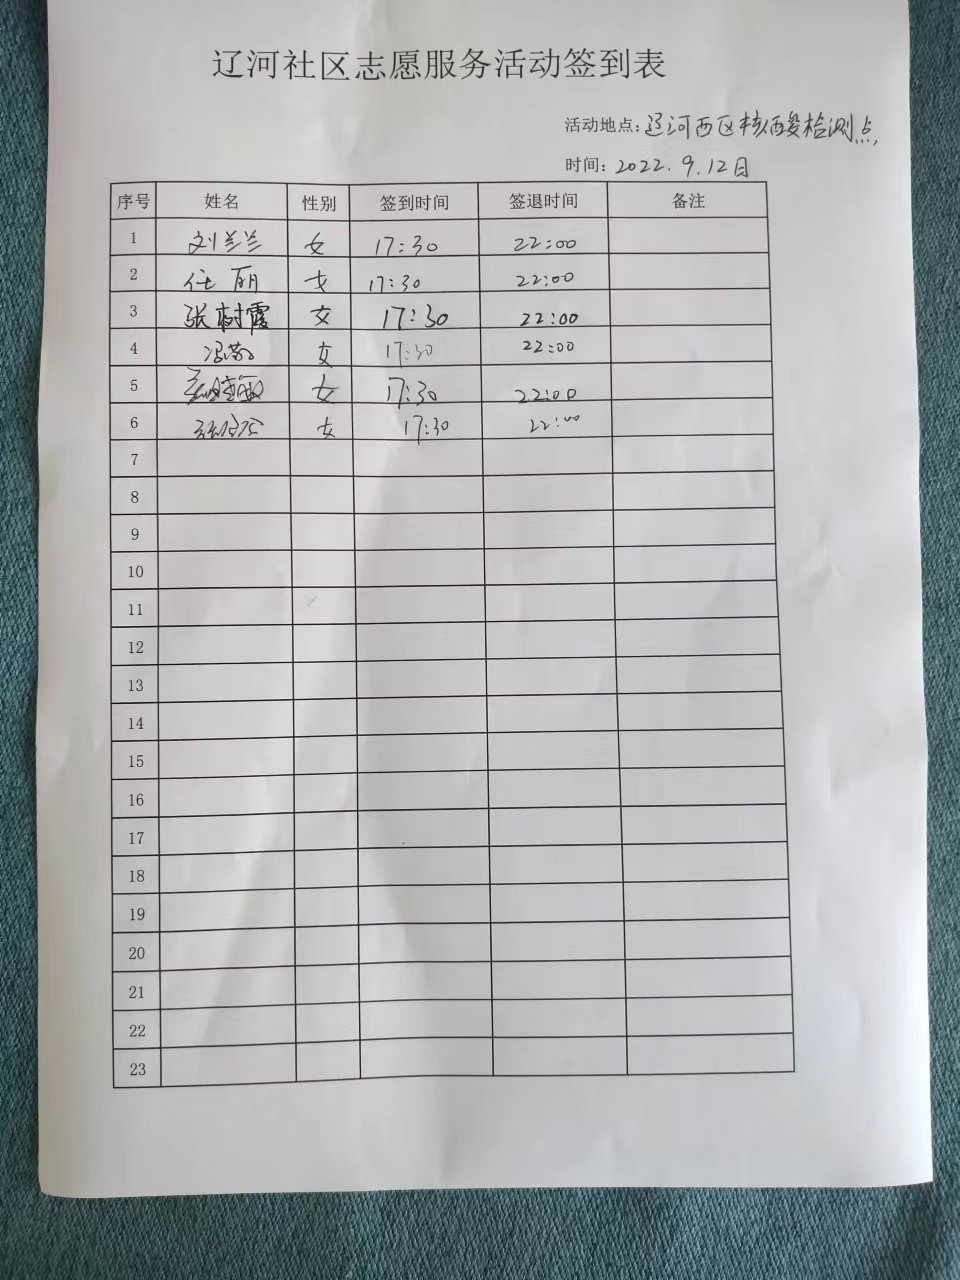 辽河社区志愿服务活动签到表
活动地点:辽河西区核酸检测点
时间:2022.9.12日
序号 姓名 性别 签到时间 签退时间 备注
1 刘兰兰 女 17:30 22:00
2 任丽 女 17:30 22:00
3 张树霞 女 17:30 22:00
4 女 17:30 22:00
5 女 17:30 22:00
6 女 17:30 22:00
7
8
9
10
11
12
13
14
15
16
17
18
19
20
21
22
23